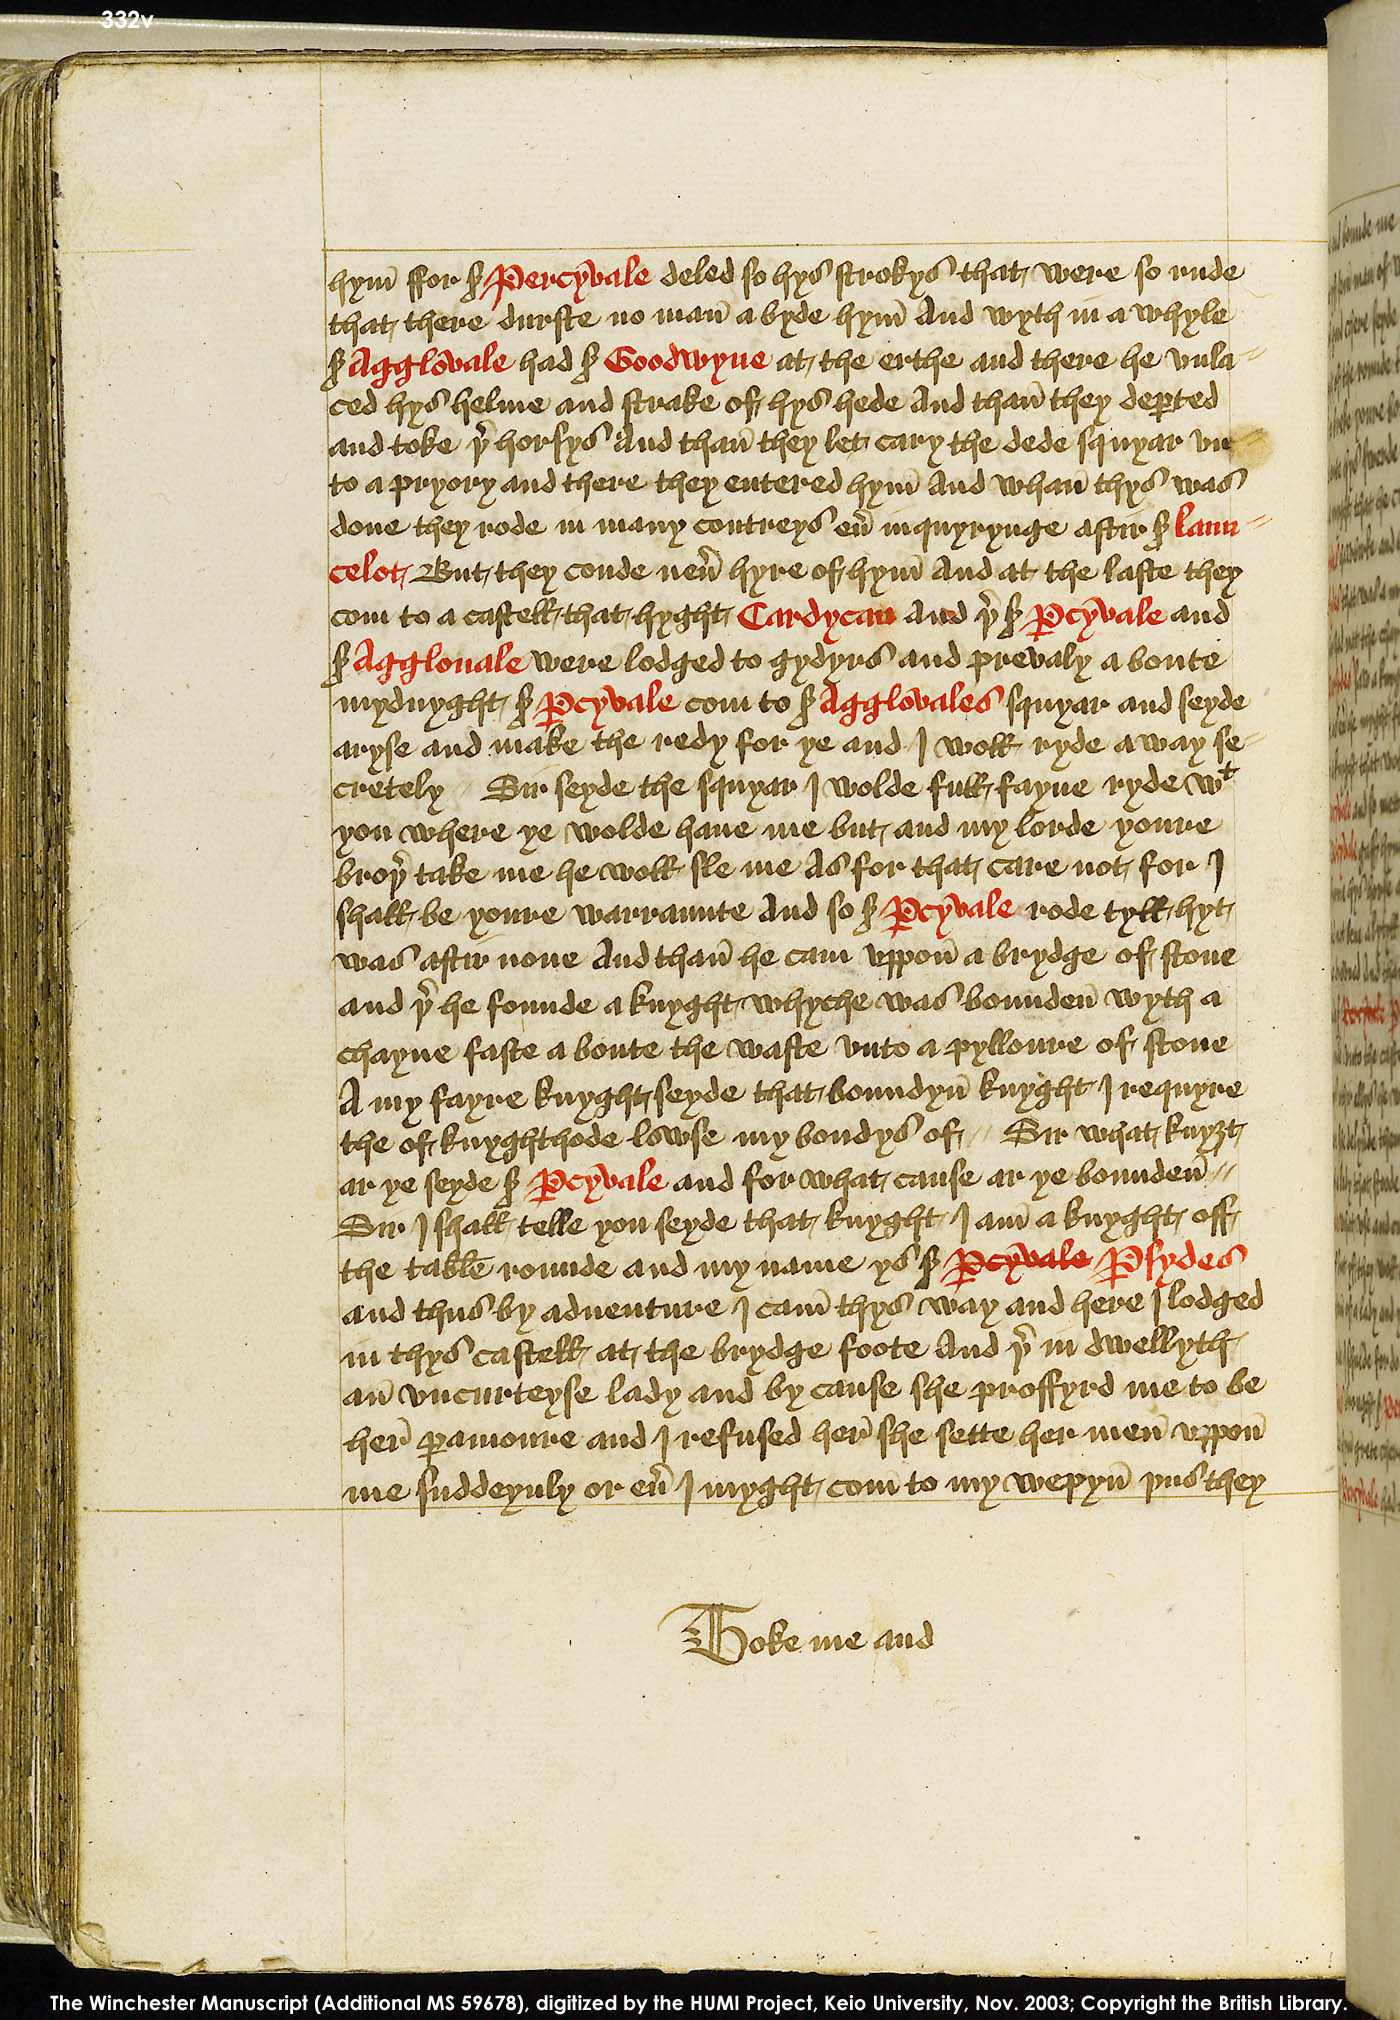 332v
hym̄ ffor ẜ Percyvale deled so hys strokys that were so rude
that there durste no man̄ a byde hym̄ And wyth in a whyle
ẜ Agglovale had ẜ Goodwyne at the erthe and there he vnla⸗
ced hys helme and strake of hys hede And than̄ they deꝑted
and toke yͬ horsys And than̄ they let cary the dede squyar vn⸗
to a pryory and there they entered hym̄ And whan̄ thys was
done they rode in many contreys eũ inquyrynge aftir ẜ laun⸗
celot But they coude neũ hyre of hym̄ And at the laste they
com to a castell that hyght Cardycan And yͬ ẜ Ꝑcyvale and
ẜ Agglouale were lodged to gydyrs and prevaly a boute
mydnyght ẜ Ꝑcyvale com to ẜ Agglovales squyar and seyde
aryse and make the redy for ye and I woll ryde away se⸗
cretely // Sir seyde the squyar I wolde full fayne ryde wᵗ
you where ye wolde haue me but and my lorde youre
broyͬ take me he woll sle me As for that care not for I
shall be youre warraunte And so ẜ Ꝑcyvale rode tyll hyt
was aftir none And than̄ he cam vppon̄ a brydge of stone
and yͬ he founde a knyght whyche was bounden̄ wyth a
chayne faste a boute the waste vnto a pylloure of stone
A my fayre knyght seyde that boundyn̄ knyght I requyre
the of knyghthode lowse my bondys of // Sir what knyȝt
ar ye seyde ẜ Ꝑcyvale and for what cause ar ye bounden̄ //
Sir I shall telle you seyde that knyght I am̄ a knyght off
the table rounde and my name ys ẜ Ꝑcyvale Ꝑsydes
and thus by aduenture I cam̄ thys way and here I lodged
in thys castell at the brydge foote And yͬ in dwellyth
an̄ vncurteyse lady and by cause she proffyrd me to be
her̄ ꝑamoure and I refused her̄ she sette her men̄ vppon̄
me suddeynly or eũ I myght com̄ to my wepyn̄ yus they
Toke me and
The Winchester Manuscript (Additional MS 59678), digitized by the HUMI Project, Keio University, Nov. 2003; Copyright the British Library.